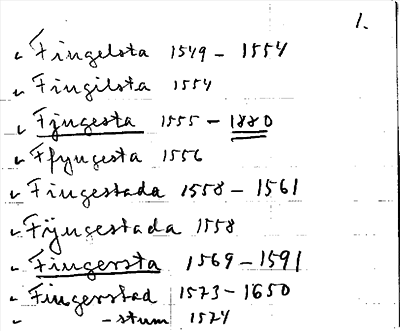 1.
Fingelsta 1549 - 1554
Fingilsta 1554
Fjngesta 1555 - 1880
Ffyngesta 1556
Fingestada 1558 - 1561
Fijngestada 1558
Fingersta 1569 - 1591
Fingerstad 1573 - 1650
-stum 1574